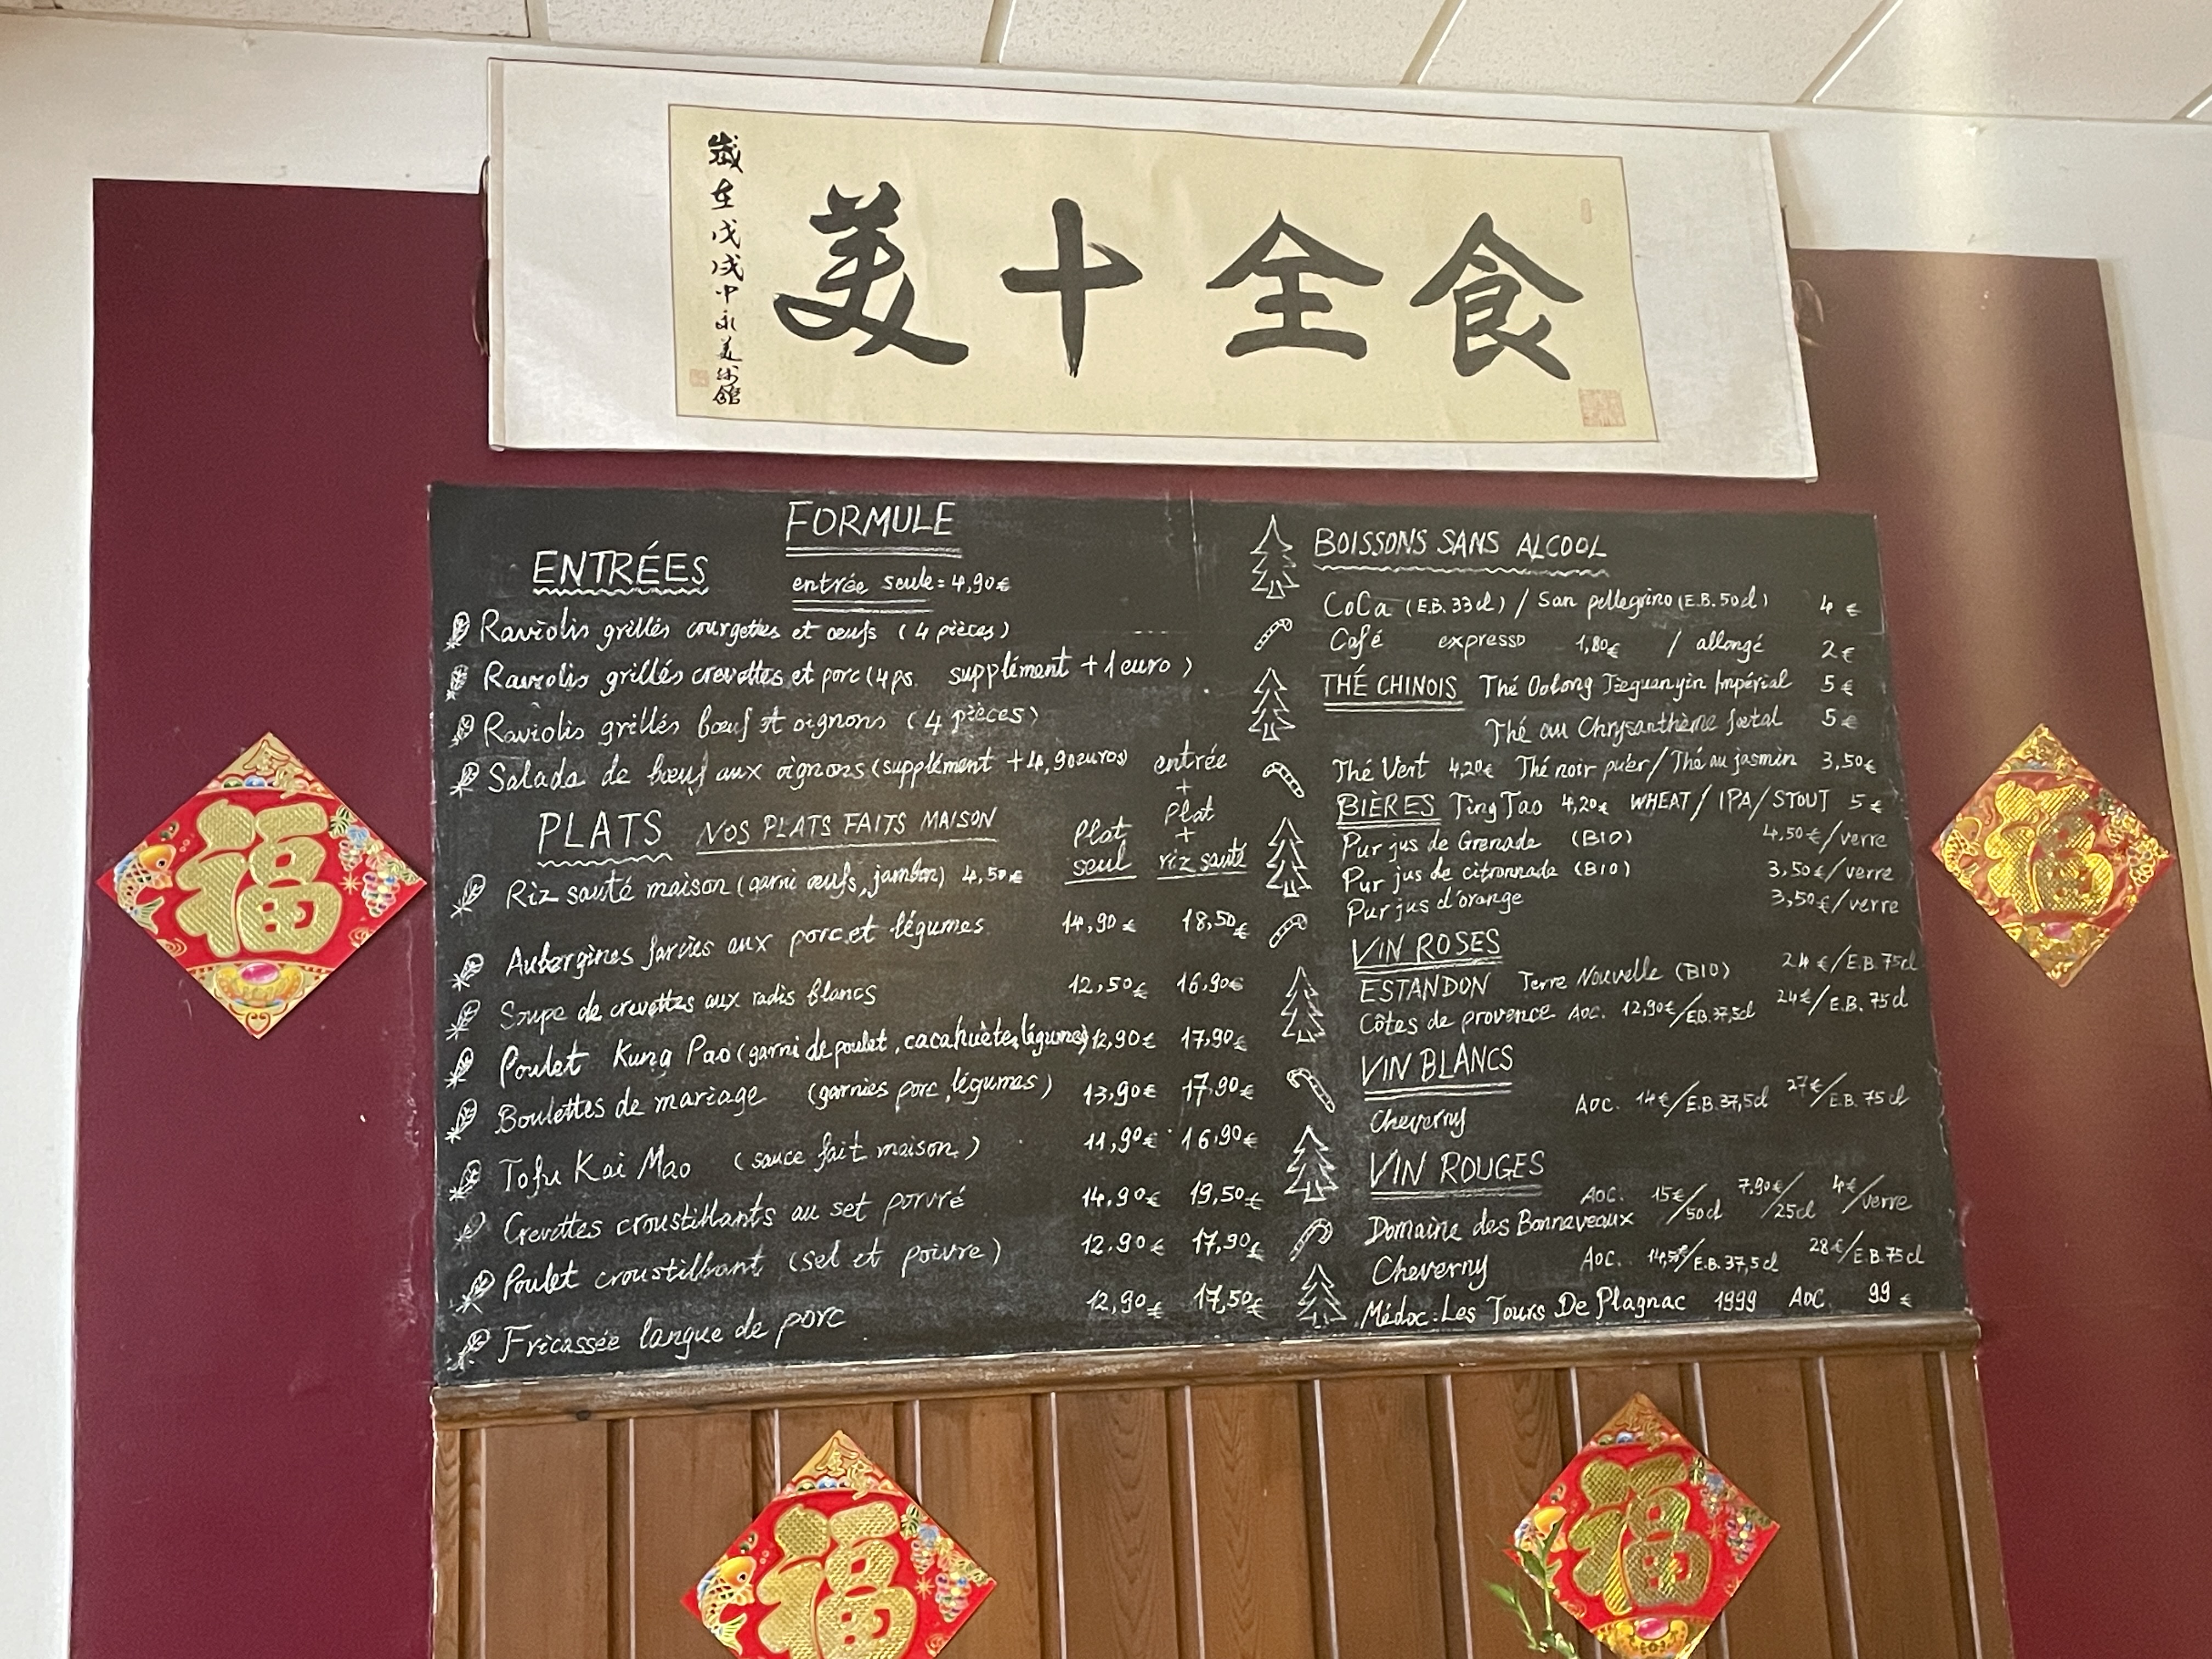 食全十美
歲在戊戌中永美術館
FORMULE
ENTRÉES
entrée seule = 4,90€
Raviolis grillés courgettes et œufs (4 pièces)
Raviolis grillés crevettes et porc (4 ps. supplément + 1 euro)
Raviolis grillés bœuf et oignons (4 pièces)
Salada de bœuf aux oignons (supplément + 4,90 euros)
PLATS NOS PLATS FAITS MAISON
Plat seul
entrée + Plat + riz sauté
Riz sauté maison (garni œufs, jambon) 4,50€
Aubergines farcies aux porc et légumes 14,90€ 18,50€
Soupe de crevettes aux radis blancs 12,50€ 16,90€
Poulet Kung Pao (garni de poulet, cacahuètes, légumes) 12,90€ 17,90€
Boulettes de mariage (garnies porc, légumes) 13,90€ 17,90€
Tofu Kai Mao (sauce fait maison) 11,90€ 16,90€
Crevettes croustillants au set poivré 14,90€ 19,50€
Poulet croustillant (sel et poivre) 12,90€ 17,90€
Fricassée langue de porc 12,90€ 17,50€
BOISSONS SANS ALCOOL
CoCa (E.B. 33cl) / San pellegrino (E.B. 50cl) 4€
Café expresso 1,80€ / allongé 2€
THÉ CHINOIS Thé Oolong Tieguanyin Impérial 5€
Thé au Chrysanthème fœtal 5€
Thé Vert 4,20€ Thé noir puer / Thé au jasmin 3,50€
BIÈRES TingTao 4,20€ WHEAT / IPA / STOUT 5€
Pur jus de Grenade (BIO) 4,50€/verre
Pur jus de citronnade (BIO) 3,50€/verre
Pur jus d'orange 3,50€/verre
VIN ROSES
ESTANDON Terre Nouvelle (BIO) 24€/E.B. 75cl
Côtes de provence AOC. 12,90€/E.B. 37,5cl 24€/E.B. 75cl
VIN BLANCS
Cheverny AOC. 14€/E.B. 37,5cl 27€/E.B. 75cl
VIN ROUGES
Domaine des Bonnaveaux AOC. 15€/50cl 7,90€/25cl 4€/verre
Cheverny AOC. 14,50€/E.B. 37,5cl 28€/E.B. 75cl
Médoc: Les Tours De Plagnac 1999 AOC. 99€
福
福
福
福